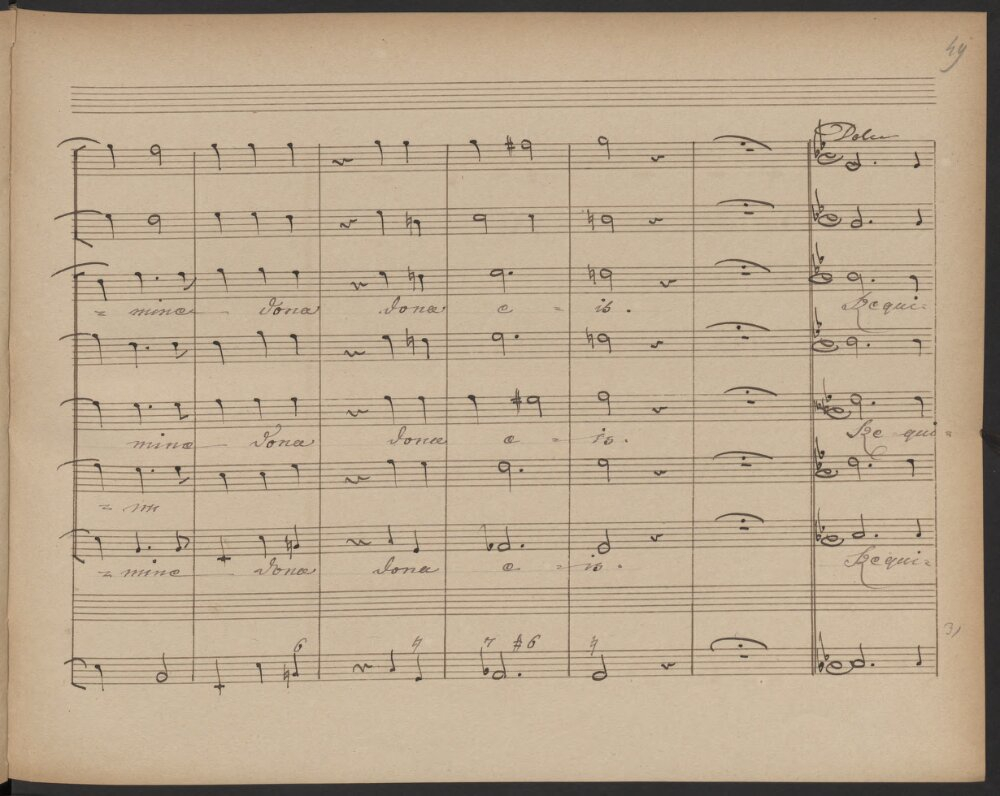 49
Dolce
= mine dona dona e = is. Requi=
mine dona dona e = is. Requi=
=
= mine dona dona e = is. Requi=
31
6 ♮ 7 #6 ♮